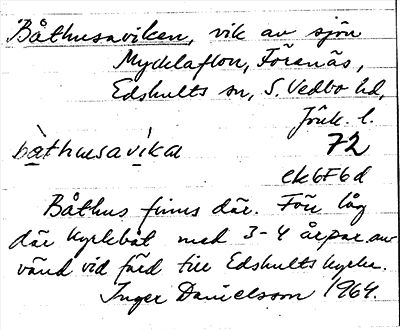 Båthusaviken, vik av sjön
Mycklaflon, Föranäs,
Edshults sn, S. Vedbo hd,
Jönk. l.
bàthusavìka 72
ek6F6d
Båthus finns där. Förr låg
där kyrkbåt med 3-4 årpar, an-
vänd vid färd till Edshults kyrka.
Inger Danielsson 1964.